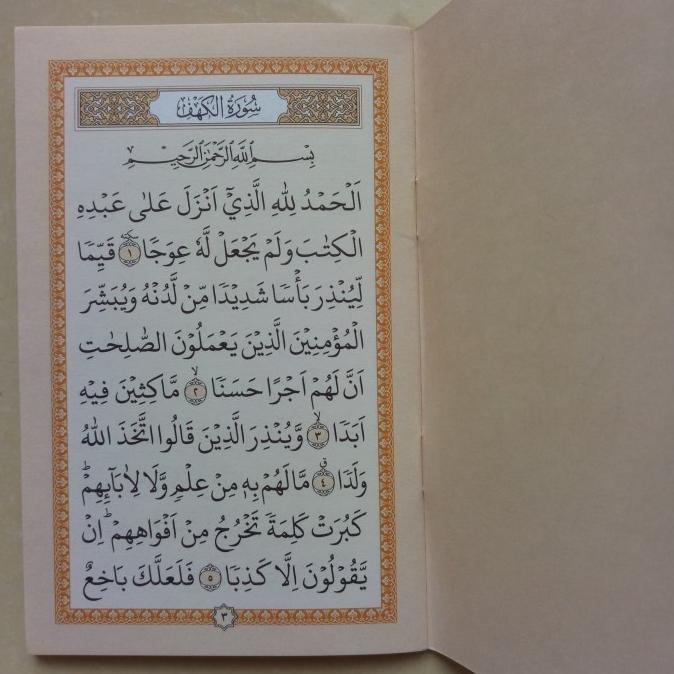 سُوْرَةُ الْكَهْفِ
بِسْمِ اللّٰهِ الرَّحْمٰنِ الرَّحِيْمِ
اَلْحَمْدُ لِلّٰهِ الَّذِيْٓ اَنْزَلَ عَلٰى عَبْدِهِ
الْكِتٰبَ وَلَمْ يَجْعَلْ لَّهٗ عِوَجًا ۜ ١ قَيِّمًا
لِّيُنْذِرَ بَأْسًا شَدِيْدًا مِّنْ لَّدُنْهُ وَيُبَشِّرَ
الْمُؤْمِنِيْنَ الَّذِيْنَ يَعْمَلُوْنَ الصّٰلِحٰتِ
اَنَّ لَهُمْ اَجْرًا حَسَنًاۙ ٢ مَّاكِثِيْنَ فِيْهِ
اَبَدًاۙ ٣ وَّيُنْذِرَ الَّذِيْنَ قَالُوا اتَّخَذَ اللّٰهُ
وَلَدًاۖ ٤ مَّا لَهُمْ بِهٖ مِنْ عِلْمٍ وَّلَا لِاٰبَاۤىِٕهِمْۗ
كَبُرَتْ كَلِمَةً تَخْرُجُ مِنْ اَفْوَاهِهِمْۗ اِنْ
يَّقُوْلُوْنَ اِلَّا كَذِبًا ٥ فَلَعَلَّكَ بَاخِعٌ
٣